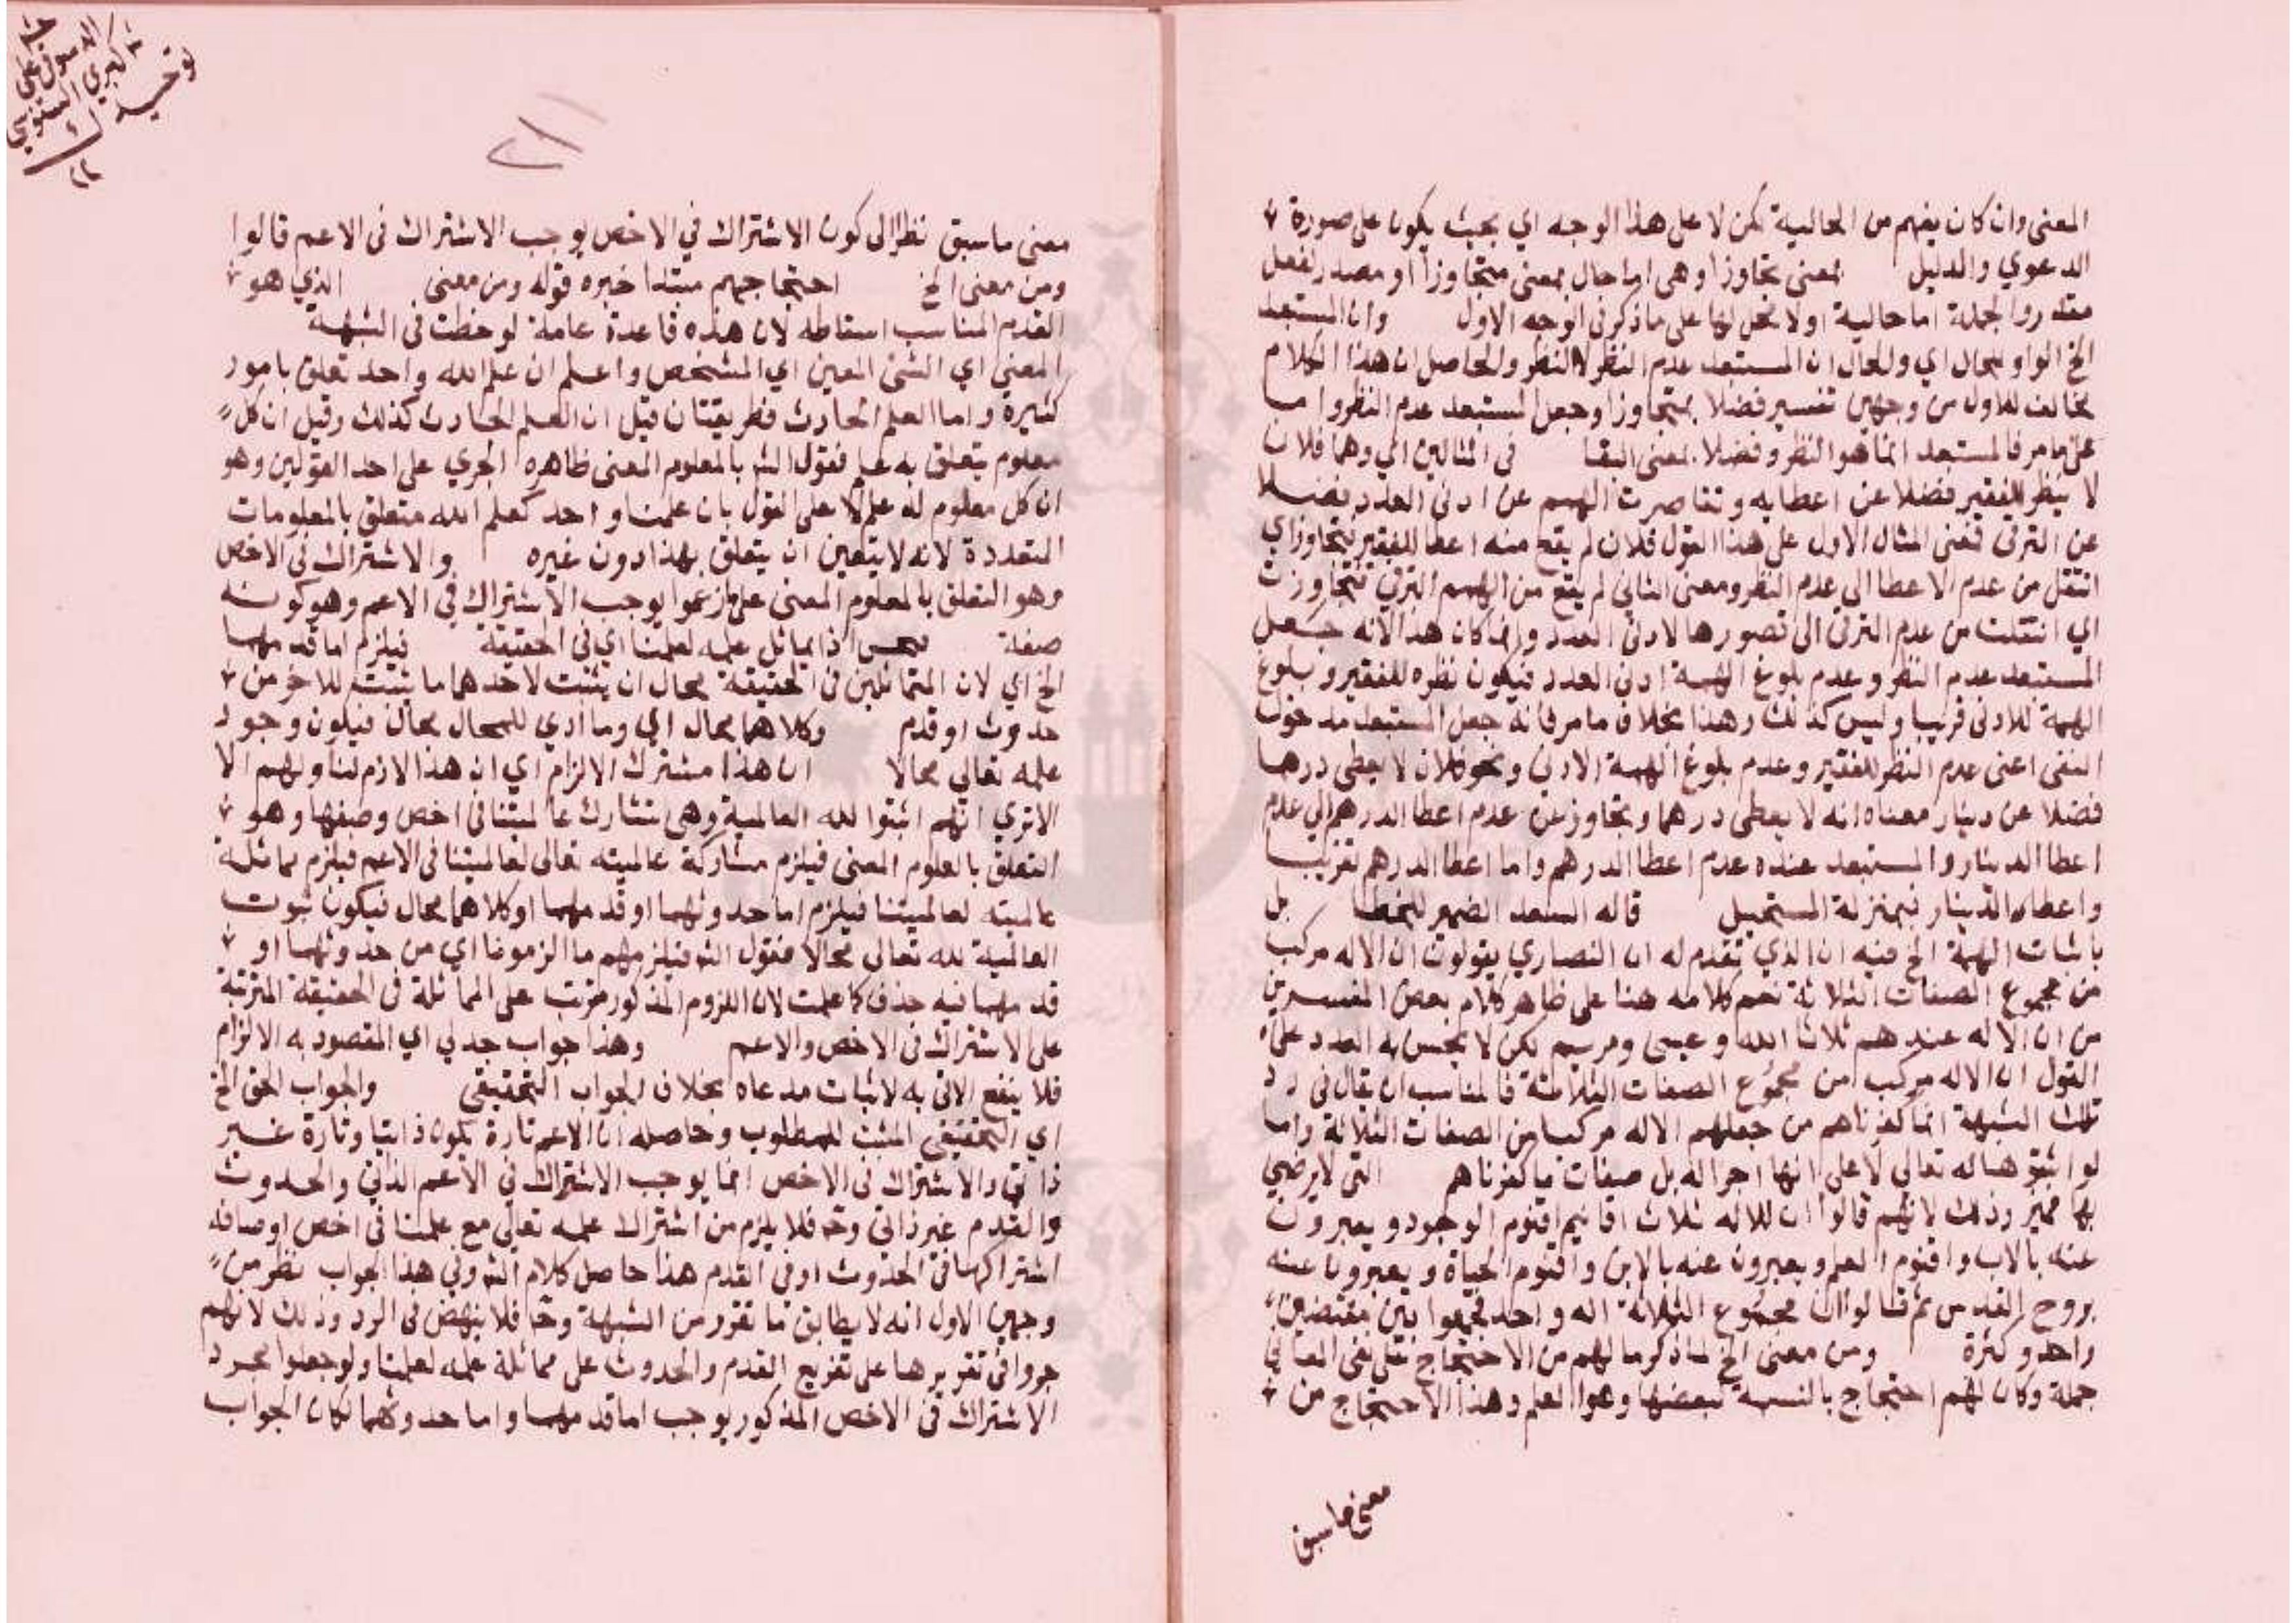 المعنى وان كان يفهم من الحالية لكن لا على هذا الوجه اي بحيث يكون على صورة
الدعوي والدليل بمعنى تجاوزا وهى اما حال بمعنى متجاوزا او مصدر لفعل
مقدر والجملة اما حالية اولا محل لها على ما ذكر فى الوجه الاول وان المستبعد
الخ الواو للحال اي والحال ان المستبعد عدم النظر لا النظر والحاصل ان هذا الكلام
مخالف للاول من وجهين تفسير فضلا بمتجاوزا وجعل المستبعد عدم النظر واما
على ما مر فالمستبعد انما هو النظر وفضلا بمعنى البقا فى المثالين اي وهما فلان
لا ينظر للفقير فضلا عن اعطايه وتقاصرت الهمم عن ادنى العدد فضلا
عن الترقى فمعنى المثال الاول على هذا القول فلان لم يقع منه اعطا للفقير فتجاوز اي
انتقل من عدم الاعطا الى عدم النظر ومعنى الثانى لم يقع من الهمم الترقى فتجاوزت
اي انتقلت من عدم الترقى الى تصورها لادنى العدد وانما كان هذا لانه جعل
المستبعد عدم النظر وعدم بلوغ الهمة ادنى العدد فيكون نظره للفقير وبلوغ
الهمة للادنى قريبا وليس كذلك وهذا بخلاف ما مر فانه جعل المستبعد مدخول
النفى اعنى عدم النظر للفقير وعدم بلوغ الهمة الادنى ونحو فلان لا يعطى درهما
فضلا عن دينار معناه انه لا يعطى درهما وتجاوز عن عدم اعطا الدرهم الى عدم
اعطا الدينار والمستبعد عنده عدم اعطا الدرهم واما اعطا الدرهم تقريبا
واعطاه الدينار فبمنزلة المستحيل قاله السعد الضمير للخطا بل
باثبات الهمة الخ فيه ان الذي تقدم له ان النصاري يقولون ان الاله مركب
من مجموع الصفات الثلاثة نعم كلامه هنا على ظاهر كلام بعض المفسرين
من ان الاله عندهم ثلاث الله وعيسى ومريم لكن لا يحسن به الرد على
القول ان الاله مركب من مجموع الصفات الثلاثة فالمناسب ان يقال فى رد
تلك الشبهة انما كفرناهم من جعلهم الاله مركبا من الصفات الثلاثة واما
لو اثبتوها له تعالى لا على انها اجزا له بل صفات ما كفرناهم التى لا يرضى
بها مميز وذلك لانهم قالوا ان للاله ثلاث اقانيم اقنوم الوجود ويعبرون
عنه بالاب واقنوم العلم ويعبرون عنه بالابن واقنوم الحياة ويعبرون عنه
بروح القدس ثم قالوا ان مجموع الثلاثة اله واحد فجمعوا بين نقيضين
واحد وكثرة ومن معنى الخ لما ذكر ما لهم من الاحتجاج على نفى المعانى
جملة وكان لهم احتجاج بالنسبة لبعضها وهو العلم وهذا الاحتجاج من
معنى ما سبق
الاسوقى على
كبري السنوسي
توحيد
معنى ما سبق نظرا الى كون الاشتراك فى الاخص يوجب الاشتراك فى الاعم قالوا
ومن معنى الخ احتجاجهم مبتدا خبره قوله ومن معنى الذي هو
القدم المناسب اسقاطه لان هذه قاعدة عامة لوحظت فى الشبهة
المعنى اي الشئ المعين اي المشخص واعلم ان علم الله واحد تعلق بامور
كثيرة واما العلم الحادث فطريقتان قيل ان العلم الحادث كذلك وقيل ان كل
معلوم يتعلق به علم فقول الش بالمعلوم المعنى ظاهره الجري على احد القولين وهو
ان كل معلوم له علم لا على القول بان علمنا واحد كعلم الله متعلق بالمعلومات
المتعددة لانه لا يتعين ان يتعلق بهذا دون غيره والاشتراك فى الاخص
وهو التعلق بالمعلوم المعنى على ما زعموا يوجب الاشتراك فى الاعم وهو كونه
صفة اذ يماثل علمه لعلمنا اي فى الحقيقة فيلزم اما قدمهما
الخ اي لان المتماثلين فى الحقيقة محال ان يثبت لاحدهما ما يثبت للاخر من
حدوث او قدم وكلاهما محال اي وما ادي للمحال محال فيكون وجود
علمه تعالى محالا ان هذا مشترك الالزام اي ان هذا لازم لنا ولهم الا
الا تري انهم اثبتوا لله العالمية وهى تشارك عالميتنا فى اخص وصفها وهو
التعلق بالمعلوم المعنى فيلزم مشاركة عالميته تعالى لعالميتنا فى الاعم فيلزم مماثلة
عالميته لعالميتنا فيلزم اما حدوثهما او قدمهما وكلاهما محال فيكون ثبوت
العالمية لله تعالى محالا فنقول الش فيلزمهم ما الزمونا اي من حدوثهما او
قدمهما فيه حذف كما علمت لان اللزوم المذكور مترتب على المماثلة فى الحقيقة المترتبة
على الاشتراك فى الاخص والاعم وهذا جواب جدلى اي المقصود به الالزام
فلا ينفع الاتى به لاثبات مدعاه بخلاف الجواب التحقيقى والجواب الحق الخ
اي التحقيقى المثبت للمطلوب وحاصله ان الاعم تارة يكون ذاتيا وتارة غير
ذاتى والاشتراك فى الاخص انما يوجب الاشتراك فى الاعم الذاتى والحدوث
والقدم غير ذاتى وح فلا يلزم من اشتراك علمه تعالى مع علمنا فى اخص اوصافه
اشتراكهما فى الحدوث او فى القدم هذا حاصل كلام الش وفى هذا الجواب نظر من
وجهين الاول انه لا يطابق ما تقرر من الشبهة وح فلا ينهض فى الرد وذلك لانهم
جروا فى تقريرها على تفريع القدم والحدوث على مماثلة علمه لعلمنا ولو جعلوا مجرد
الاشتراك فى الاخص المذكور يوجب اما قدمهما واما حدوثهما لكان الجواب